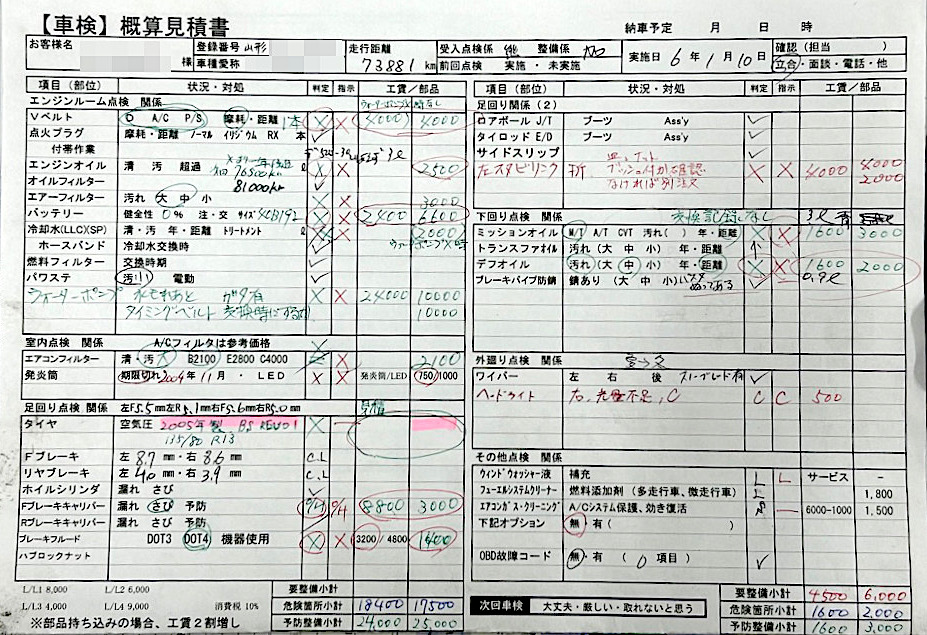 【車検】概算見積書
納車予定 月 日 時
お客様名 様
登録番号 山形
車種愛称
走行距離 73881 km
受入点検係 整備係
前回点検 実施・未実施
実施日 6年 1月 10日
確認(担当 )
立会・面談・電話・他
項目(部位) 状況・対処 判定 指示 工賃/部品
エンジンルーム点検 関係
Vベルト O A/C P/S 摩耗・距離 1本 × × 4000 4000
点火プラグ 摩耗・距離 ノーマル イリジウム RX 本
付帯作業
エンジンオイル 清 汚 超過 76500km 2500
オイルフィルター 81000km
エアーフィルター 汚れ 大 中 小 3000
バッテリー 健全性 0% 注・交 サイズ 40B19L × × 2400 6600
冷却水(LLC)(SP) 清・汚 年・距離 トリートメント 2000
ホースバンド 冷却水交換時 ウォーターポンプ×時
燃料フィルター 交換時期
パワステ 汚 電動
ウォーターポンプ 水もれあと ガタ有 × × 24000 10000
タイミングベルト 交換時にする 10000
室内点検 関係 A/Cフィルタは参考価格
エアコンフィルター 清・汚 大 B2100 E2800 C4000 × 2100
発炎筒 期限切れ 2009年11月・LED × × 発炎筒/LED 750/1000
足回り点検 関係 左F5.5mm左R5.1mm右F5.6mm右R5.0mm 見積
タイヤ 空気圧 2005年製 BS REVO1 ×
135/80 R13
Fブレーキ 左 8.7 mm・右 8.6 mm C.L
リヤブレーキ 左 4.0 mm・右 3.9 mm C.L
ホイルシリンダ 漏れ さび
Fブレーキキャリパー 漏れ さび 予防 8800 3000
Rブレーキキャリパー 漏れ さび 予防
ブレーキフルード DOT3 DOT4 機器使用 × × 3200/4800 1400
ハブロックナット
L/L1 8,000 L/L2 6,000
L/L3 4,000 L/L4 9,000 消費税 10%
※部品持ち込みの場合、工賃2割増し
要整備小計
危険箇所小計 18400 17500
予防整備小計 24,000 25,000
項目(部位) 状況・対処 判定 指示 工賃/部品
足回り点検 関係(2)
ロアボール J/T ブーツ Ass'y
タイロッド E/D ブーツ Ass'y
サイドスリップ
左スタビリンク × × 4000 4000
なければ別注文 2000
下回り点検 関係 交換記録なし
ミッションオイル M/T A/T CVT 汚れ( )年・距離 × × 1600 3000
トランスファオイル 汚れ(大 中 小) 年・距離
デフオイル 汚れ(大 中 小) 年・距離 × × 1600 2000
ブレーキパイプ防錆 錆あり(大 中 小) ぬってある 0.9ℓ
外廻り点検 関係
ワイパー 左 右 後
ヘッドライト 右、光量不足、C C C 500
その他点検 関係
ウィンドウォッシャー液 補充 L L サービス -
フューエルシステムクリーナー 燃料添加剤(多走行車、微走行車) 1,800
エアコンガス・クリーニング A/Cシステム保護、効き復活 6000-1000 1,500
下記オプション 無・有( )
OBD故障コード 無・有( 0 項目)
次回車検 大丈夫・厳しい・取れないと思う
要整備小計 4500 6,000
危険箇所小計 1600 2,000
予防整備小計 1600 3,000